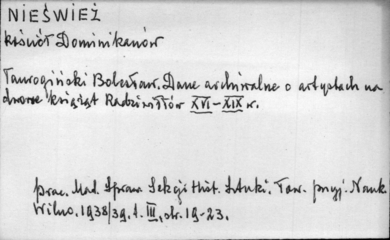 NIEŚWIEŻ
kościół Dominikanów
Taurogiński Bolesław. Dane archiwalne o artystach na
dworze książąt Radziwiłłów XVI-XIX w.
prac. Mat. Spraw. Sekcji Hist. Sztuki. Tow. przyj. Nauk
Wilno. 1938/39. t. III, str. 19-23.